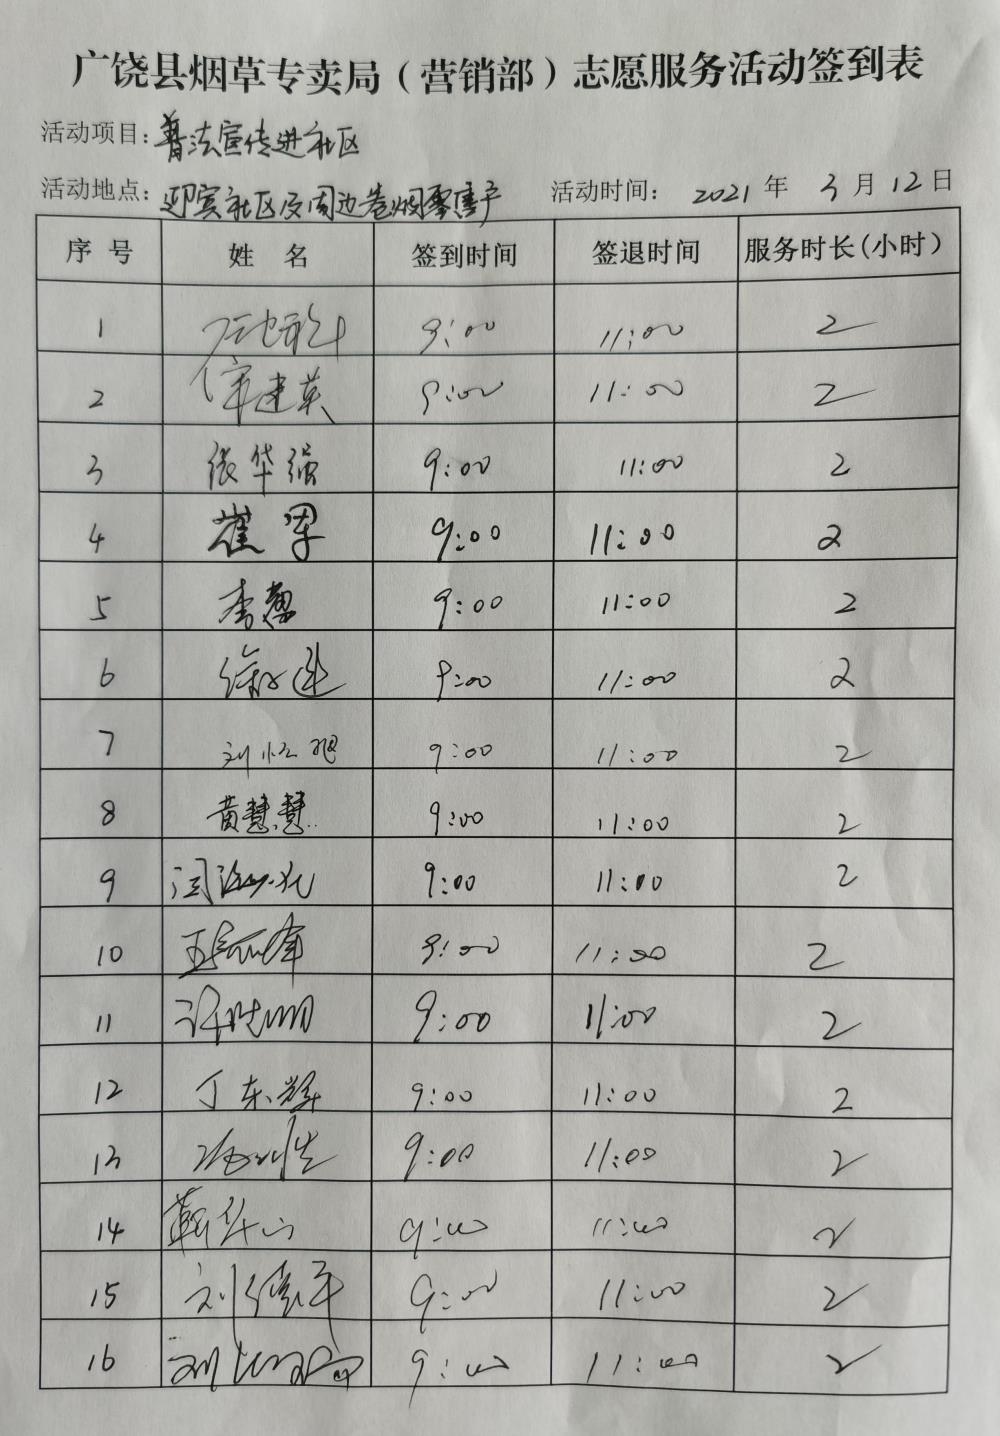 广饶县烟草专卖局（营销部）志愿服务活动签到表
活动项目：普法宣传进社区
活动地点：迎宾社区及周边卷烟零售户 活动时间： 2021 年 3 月 12 日
序 号 姓 名 签到时间 签退时间 服务时长(小时)
1 9:00 11:00 2
2 建英 9:00 11:00 2
3 张华强 9:00 11:00 2
4 崔军 9:00 11:00 2
5 李慧 9:00 11:00 2
6 徐 9:00 11:00 2
7 刘 9:00 11:00 2
8 黄慧慧 9:00 11:00 2
9 9:00 11:00 2
10 9:00 11:00 2
11 许晓明 9:00 11:00 2
12 丁东辉 9:00 11:00 2
13 9:00 11:00 2
14 靳华山 9:00 11:00 2
15 刘德军 9:00 11:00 2
16 刘 9:00 11:00 2